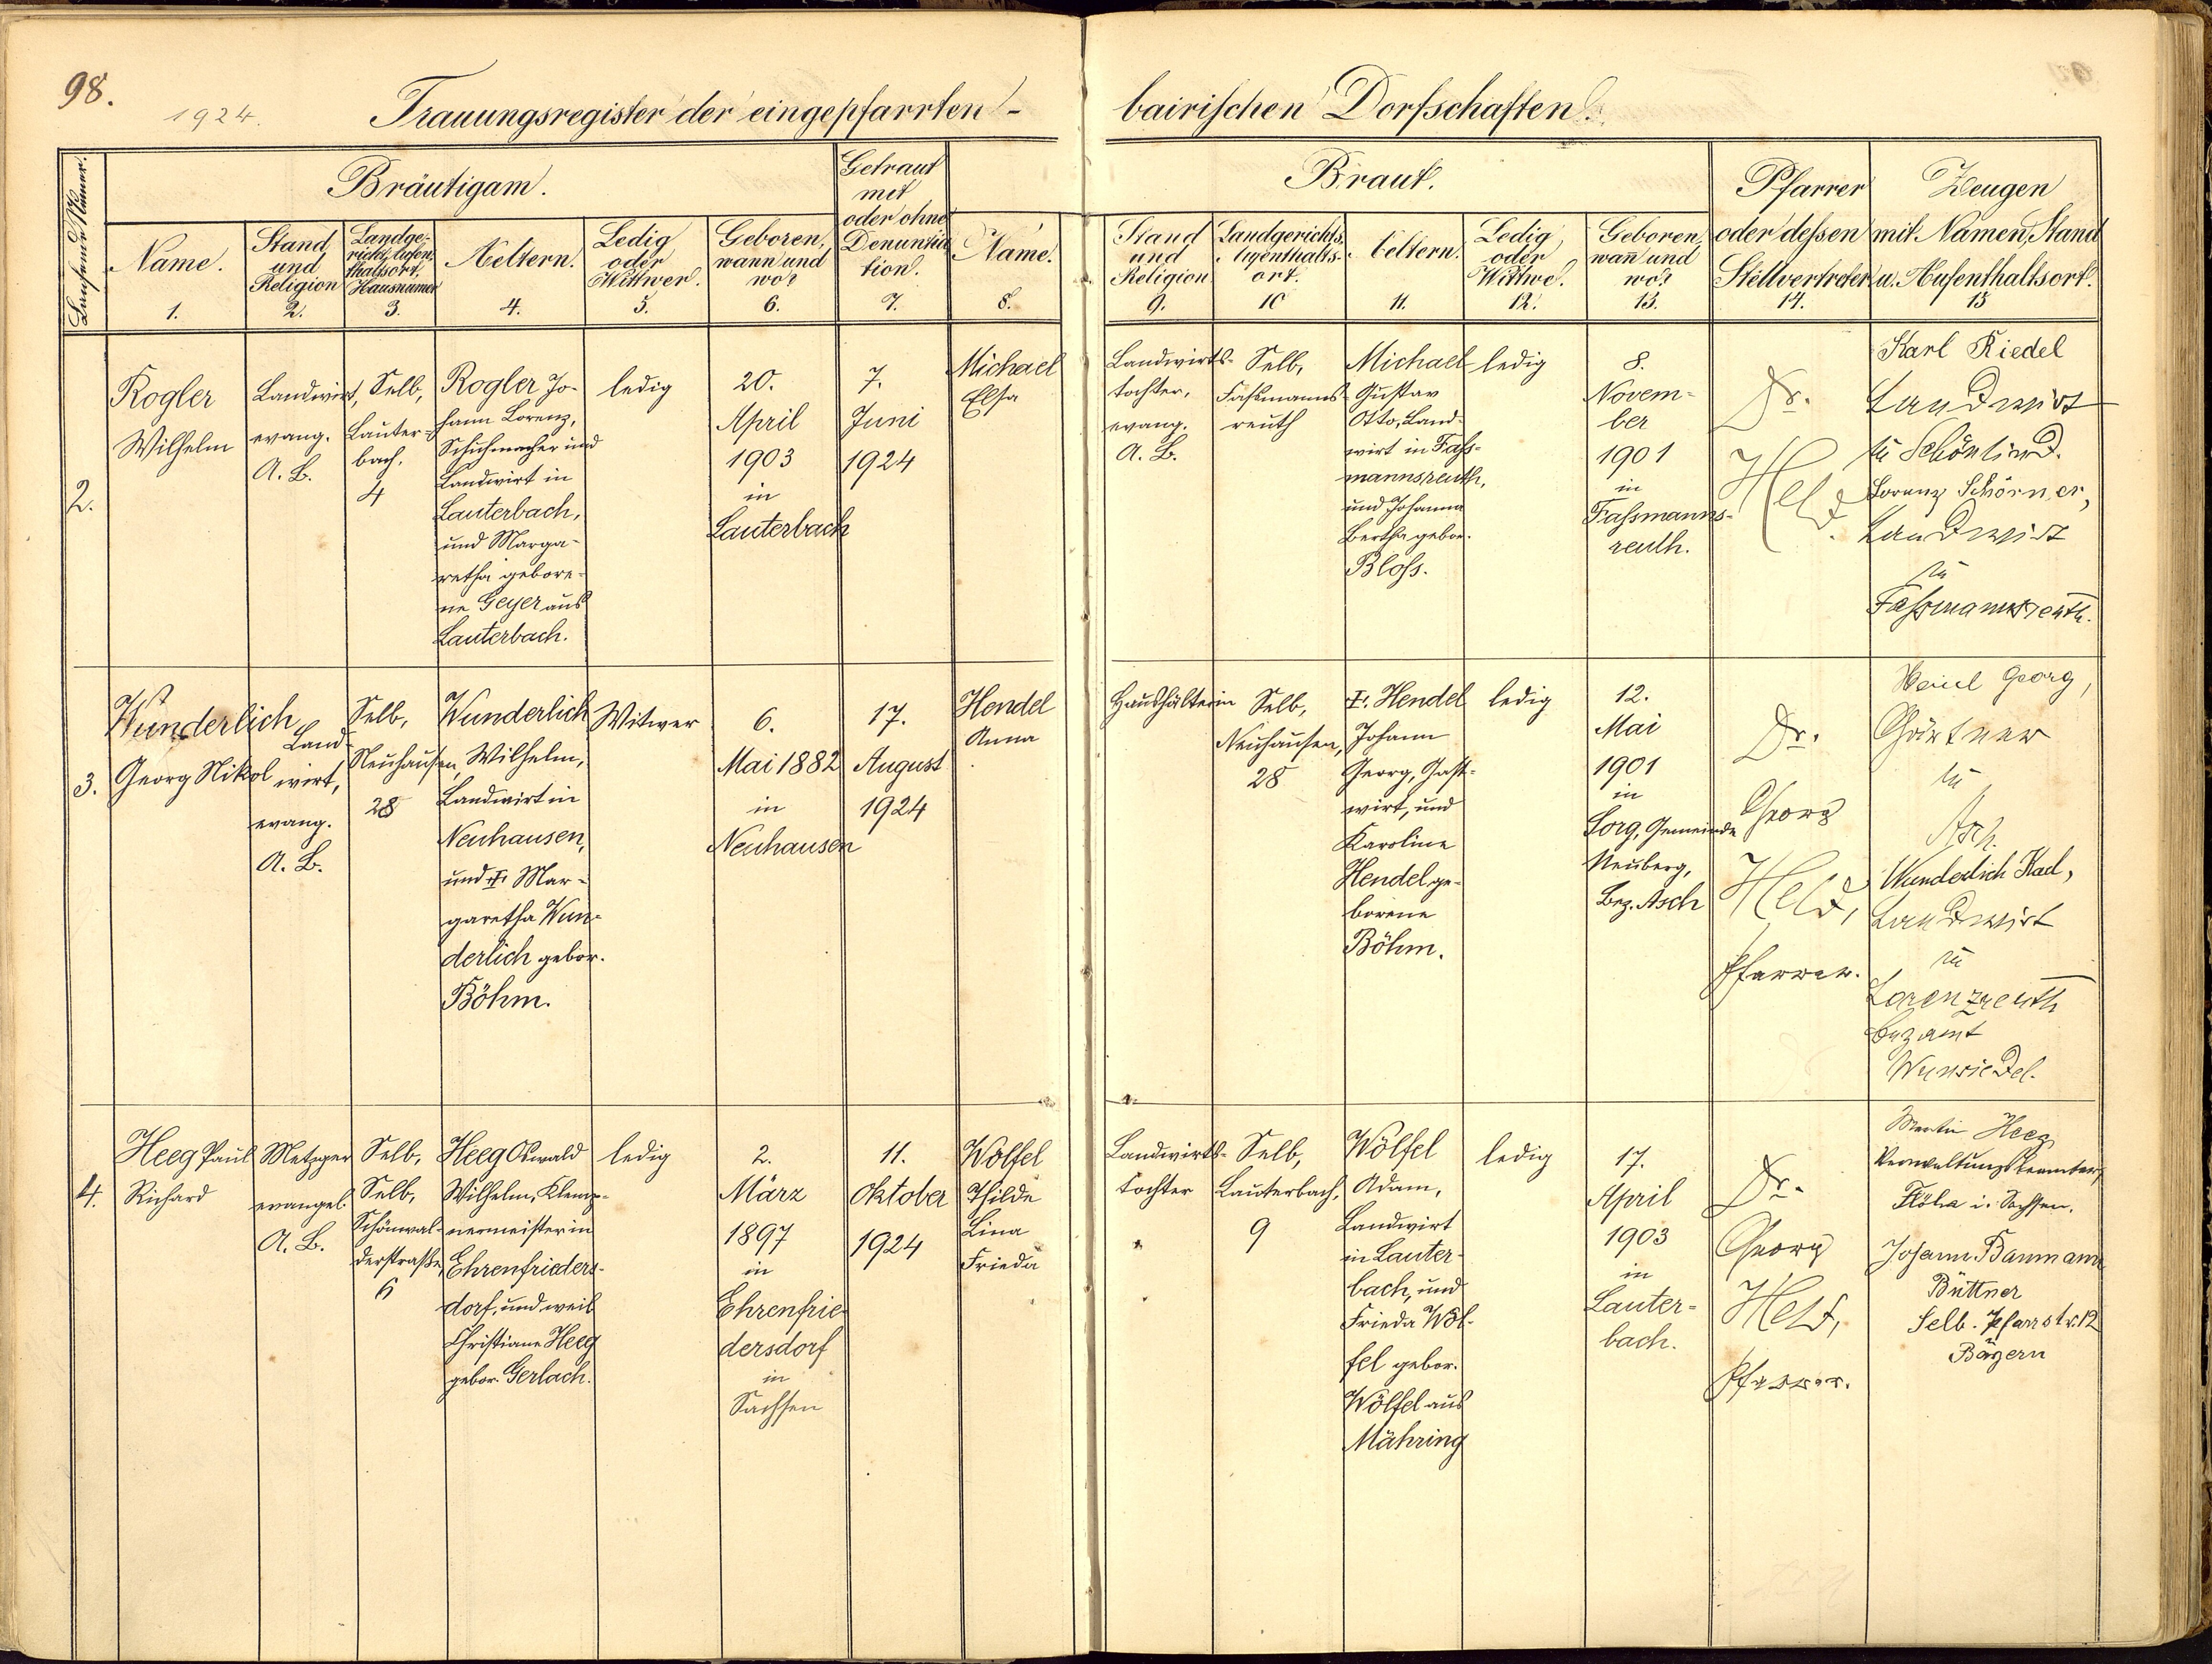 98.
1924.
Trauungsregister der eingepfarrten -
bairischen Dorfschaften.
Laufende Numer.
Bräutigam.
Name.
1.
Stand
und
Religion
2.
Landge-
richt, Aufen-
thaltsort,
Hausnumer
3.
Aeltern.
4.
Ledig
oder
Wittwer.
5.
Geboren,
wann und
wo?
6.
Getraut
mit
oder ohne
Denuntia
tion.
7.
Name.
8.
Braut.
Stand
und
Religion
9.
Landgerichts-
Aufenthalts-
ort.
10
Aeltern.
11.
Ledig
oder
Wittwe.
12.
Geboren,
wann und
wo?
13.
Pfarrer
oder dessen
Stellvertreter
14.
Zeugen
mit Namen, Stand
u. Aufenthaltsort.
15
2.
Rogler
Wilhelm
Landwirt,
evang.
A. B.
Selb,
Lauter-
bach.
4
Rogler Jo-
hann Lorenz,
Schuhmacher und
Landwirt in
Lauterbach,
und Marga-
retha gebore-
ne Geyer aus
Lauterbach.
ledig
20.
April
1903
in
Lauterbach
7.
Juni
1924
Michael
Elsa
Landwirts-
tochter,
evang.
A. B.
Selb,
Faßmanns-
reuth
Michael
Gustav
Otto, Land-
wirt in Faß-
mannsreuth,
und Johanna
Bertha gebor.
Bloß.
ledig
8.
Novem-
ber
1901
in
Fassmanns-
reuth.
Dr.
Held.
Karl Riedel
Landwirt
zu Schönlind.
Lorenz Schörner,
Landwirt
zu
Faßmannsreuth.
3.
Wunderlich
Georg Nikol
Land-
wirt,
evang.
A. B.
Selb,
Neuhausen,
28
Wunderlich
Wilhelm,
Landwirt in
Neuhausen,
und † Mar-
garetha Wun-
derlich gebor.
Böhm.
Witwer
6.
Mai 1882
in
Neuhausen
17.
August
1924
Hendel
Anna
Haushälterin
Selb,
Neuhausen,
28
†. Hendel
Johann
Georg, Gast-
wirt, und
Karoline
Hendel ge-
borene
Böhm.
ledig
12.
Mai
1901
in
Sorg, Gemeinde
Neuberg,
Bez. Asch
Dr.
Georg
Held,
Pfarrer.
Georg,
Gärtner
zu
Asch.
Wunderlich Karl,
Landwirt
zu
Lorenzreuth
Bezamt
Wunsiedel.
4.
Heeg Paul
Richard
Metzger
evangel.
A. B.
Selb,
Selb,
Schönwal-
derstraße,
6
Heeg Oswald
Wilhelm, Klemp-
nermeister in
Ehrenfrieders-
dorf, und weil.
Christiane Heeg
gebor. Gerlach.
ledig
2.
März
1897
in
Ehrenfrie-
dersdorf
in
Sachsen
11.
Oktober
1924
Wölfel
Thilde
Lina
Frieda
Landwirts-
tochter
Selb,
Lauterbach,
9
Wölfel
Adam,
Landwirt
in Lauter-
bach, und
Frieda Wöl-
fel gebor.
Wölfel aus
Mähring
ledig
17.
April
1903
in
Lauter-
bach.
Dr.
Georg
Held,
Pfarrer.
Martin Heeg
Verwaltungsbeamter,
Flöha i. Sachsen.
Johann Baumann
Büttner
Selb. Pfarrstr. 12
Bayern